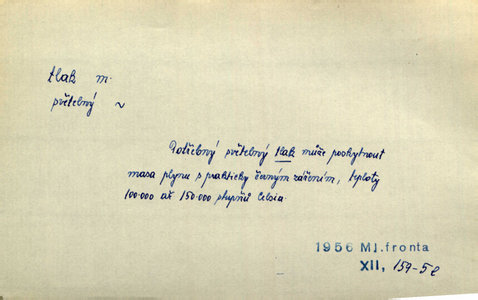 tlak m.
světelný ~
Potřebný světelný tlak může poskytnout
masa plynu s prakticky černým zářením, teploty
100.000 až 150.000 stupňů Celsia.
1956 Ml.fronta
XII, 159-5e